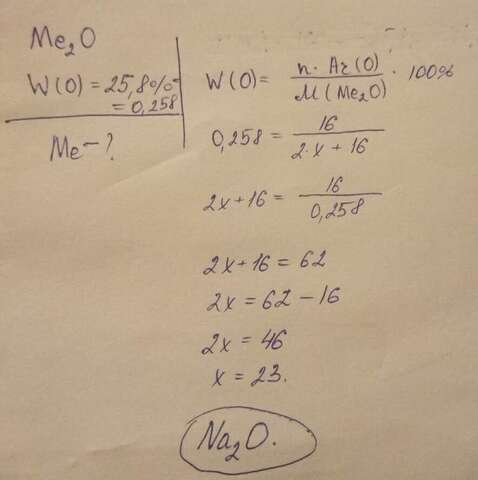 Me₂O
W(O) = 25,8%
= 0,258
Me - ?
W(O) = n · Ar(O) / M(Me₂O) · 100%
0,258 = 16 / 2·x + 16
2x + 16 = 16 / 0,258
2x + 16 = 62
2x = 62 - 16
2x = 46
x = 23.
Na₂O.